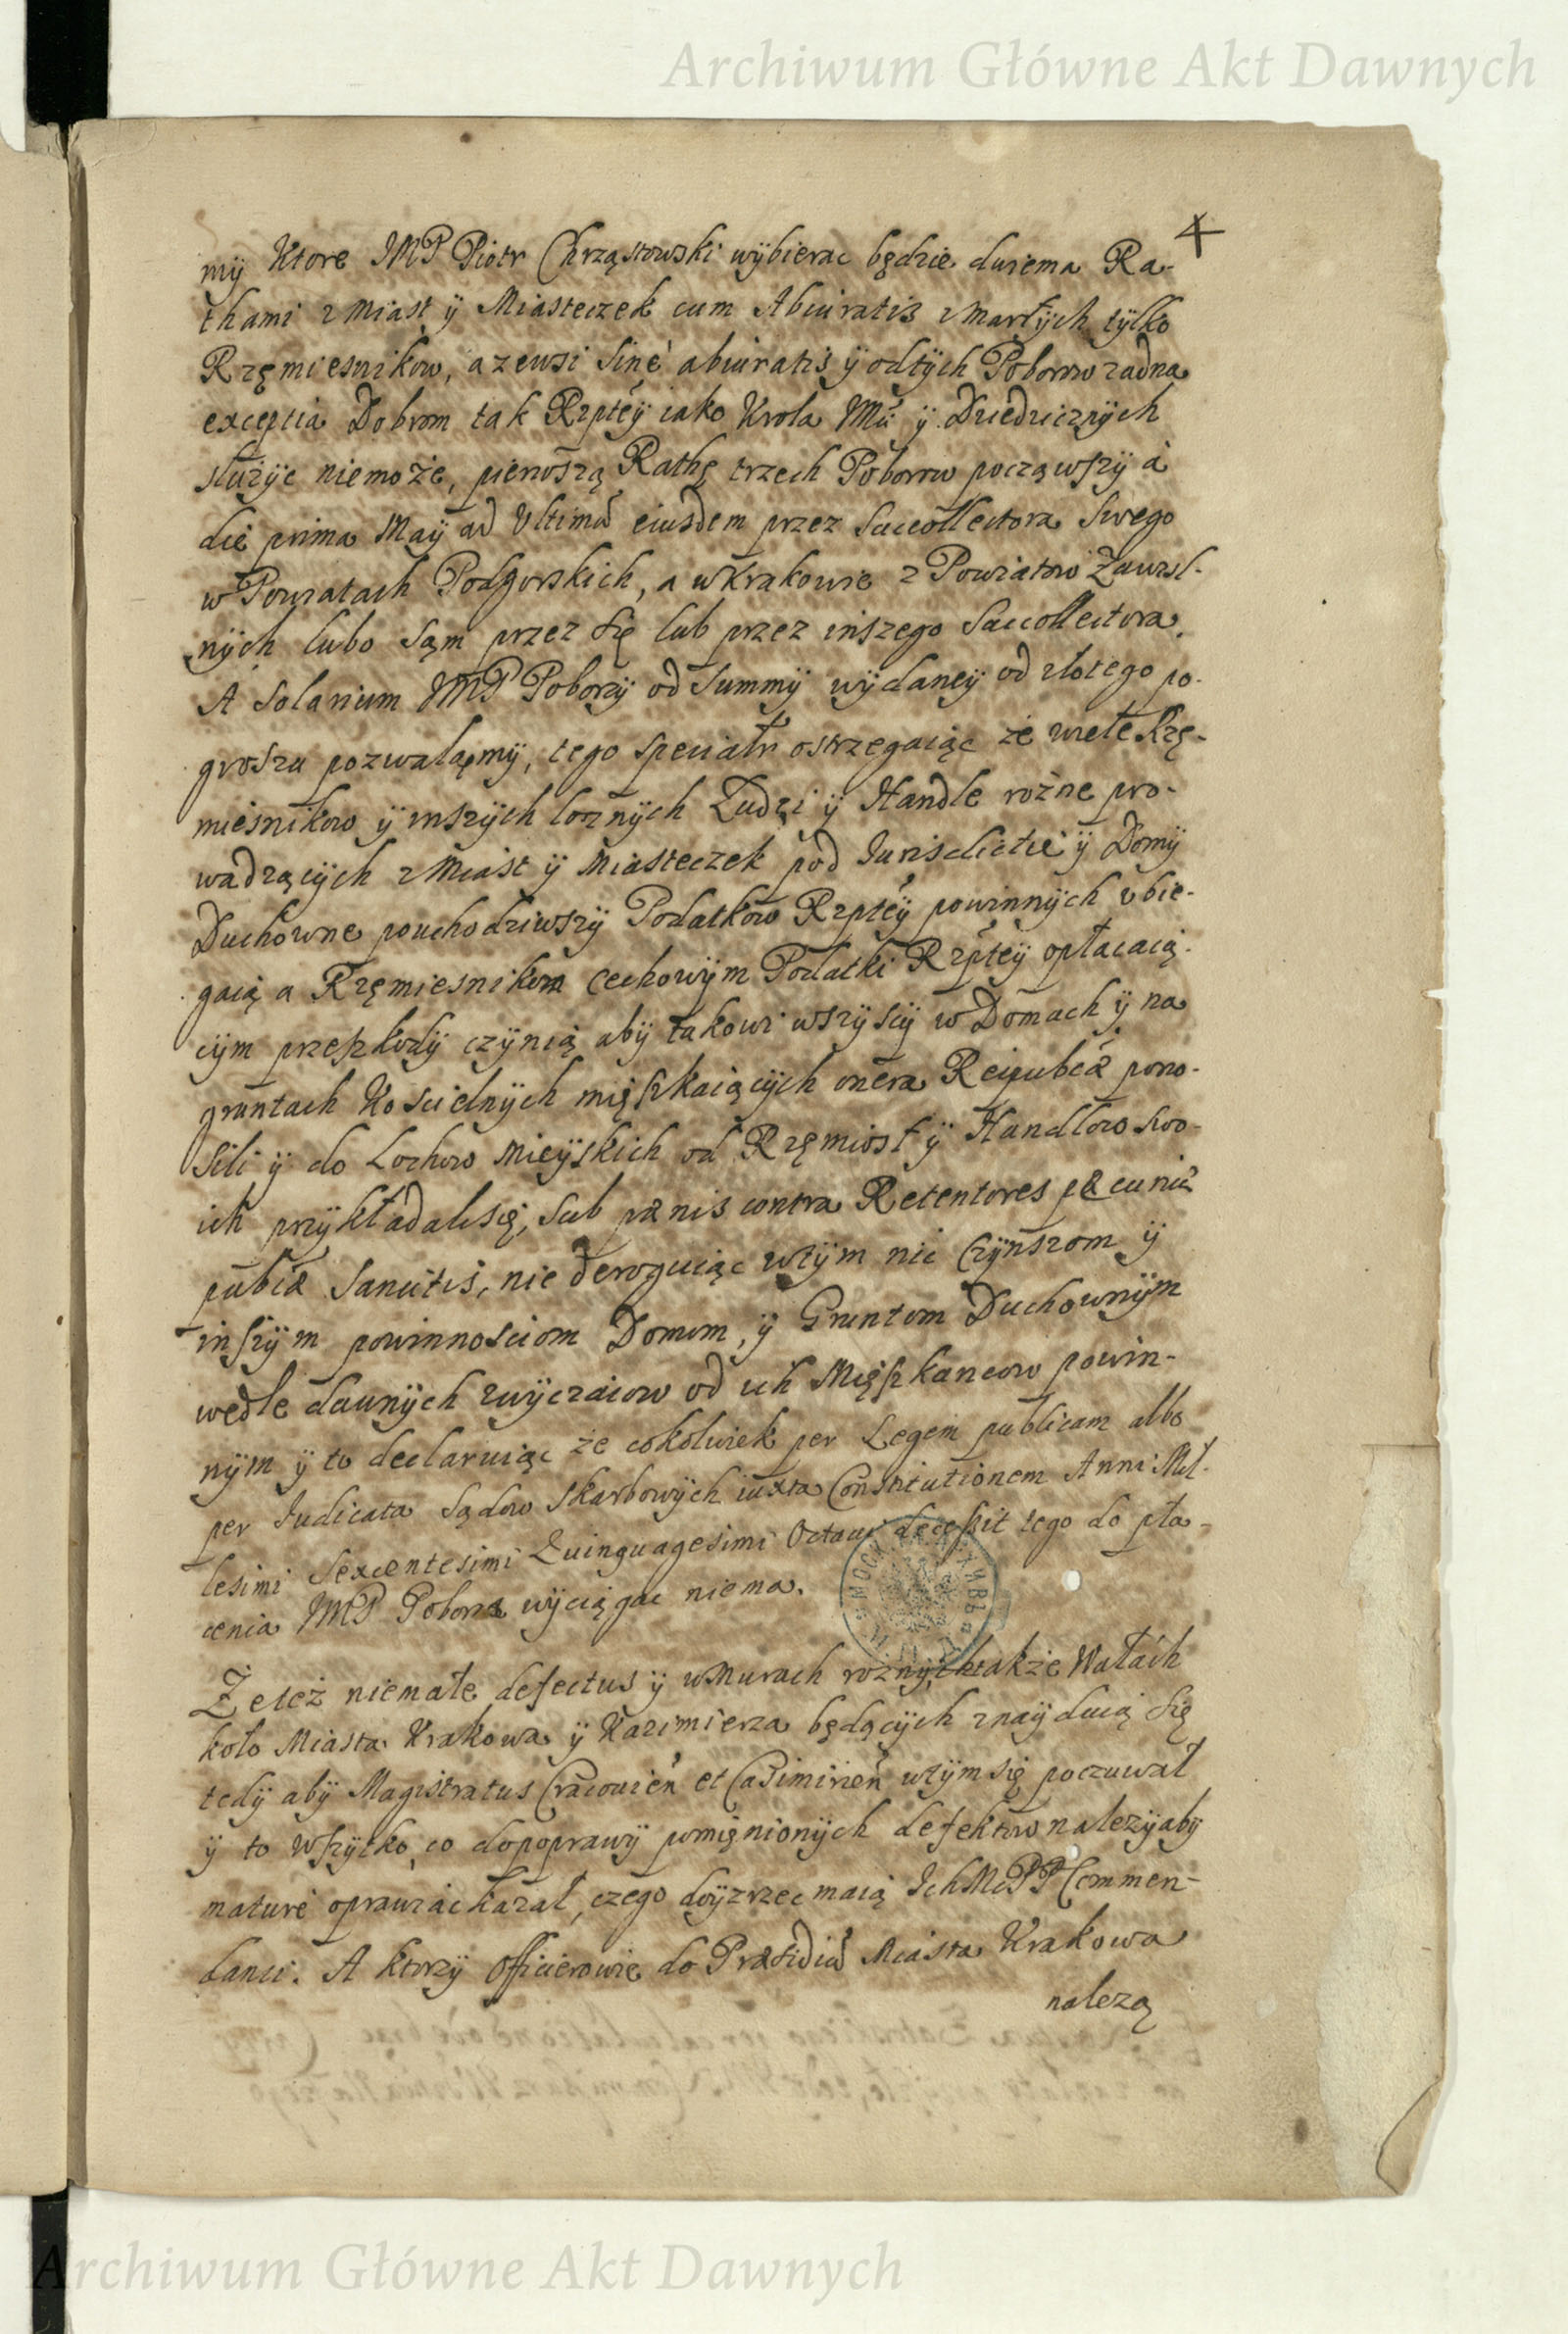 Archiwum Główne Akt Dawnych
4
mÿ Ktore JMP Piotr Chrząstowski wÿbierac będzie dwiema Ra-
thami z Miast ÿ Miasteczek cum Abiuratis zmarłÿch tÿlko
Rzęmiesnikow, a ze wsi sine abiuratis ÿ od tÿch Poborow zadna
exceptia Dobrom tak Rzptéÿ iako Krola Mci ÿ Dziedzicznÿch
słuzÿc niemoże, pierwszą Rathę trzech Poborow począwszÿ à
die prima Maÿ ad Vltimã eiusdem przez Succollectora swego
w Powiatach Podgorskich, a w Krakowie z Powiatow Zawisl-
nÿch lubo sąm przez się lub przez inszego Succollectora.
A Solarium JMP Poborcÿ od Summÿ wÿdaneÿ od złotego po-
groszu pozwaląmÿ, tego specialr ostrzegaiąc że wiele Rzę-
miesnikow ÿ inszÿch loznÿch Ludzi ÿ Handle rożne pro-
wadzącÿch z Miast ÿ Miasteczek pod Jurisdictie ÿ Domÿ
Duchowne pouchodziwszÿ Podatkow Rzptéÿ powinnÿch vbie-
gaią a Rzęmiesnikom Cechowÿm Podatki Rzptéÿ opłacaią-
cÿm przeszkodÿ czÿnią abÿ takowi wszÿscÿ w Domach ÿ na
gruntach Koscielnÿch mięszkaiącÿch onera Reipubcæ pono-
sili ÿ do Lochow Mieÿskich od Rzęmiosł ÿ Handlow swo-
ich przÿkładali się, sub pænis contra Retentores pecuniæ
pubcæ Sancitis, nie deroguiąc wtÿm nic Czÿnszom ÿ
inszÿm powinnosciom Domom, ÿ Gruntom Duchownÿm
wedle dawnÿch zwÿczaiow od ich Mięszkancow powin-
nÿm ÿ to declaruiąc że cokolwiek per Legem publicam albo
per Judicata Sądow Skarbowÿch iuxta Constitutionem Anni Mil-
lesimi Sexcentesimi Quinquagesimi Octaui decessit tego do pła-
cenia JMP Poborca wÿciągac niema.
Że też niemałe defectus ÿ w Murach roznÿch także Wałach
koło Miasta Krakowa ÿ Kazimierza będącÿch znaÿduią się
tedÿ abÿ Magistratus Cracouień et Casimirień wtÿm się poczuwał
ÿ to wszÿtko, co do poprawÿ pomięnionÿch defektow nalezÿ abÿ
maturè oprawiac kazał, czego doÿzrzec maią Ich Mć PP Commen-
danci. A ktorzÿ Officierowie do Præsidiũ Miasta Krakowa
nalezą
Archiwum Główne Akt Dawnych